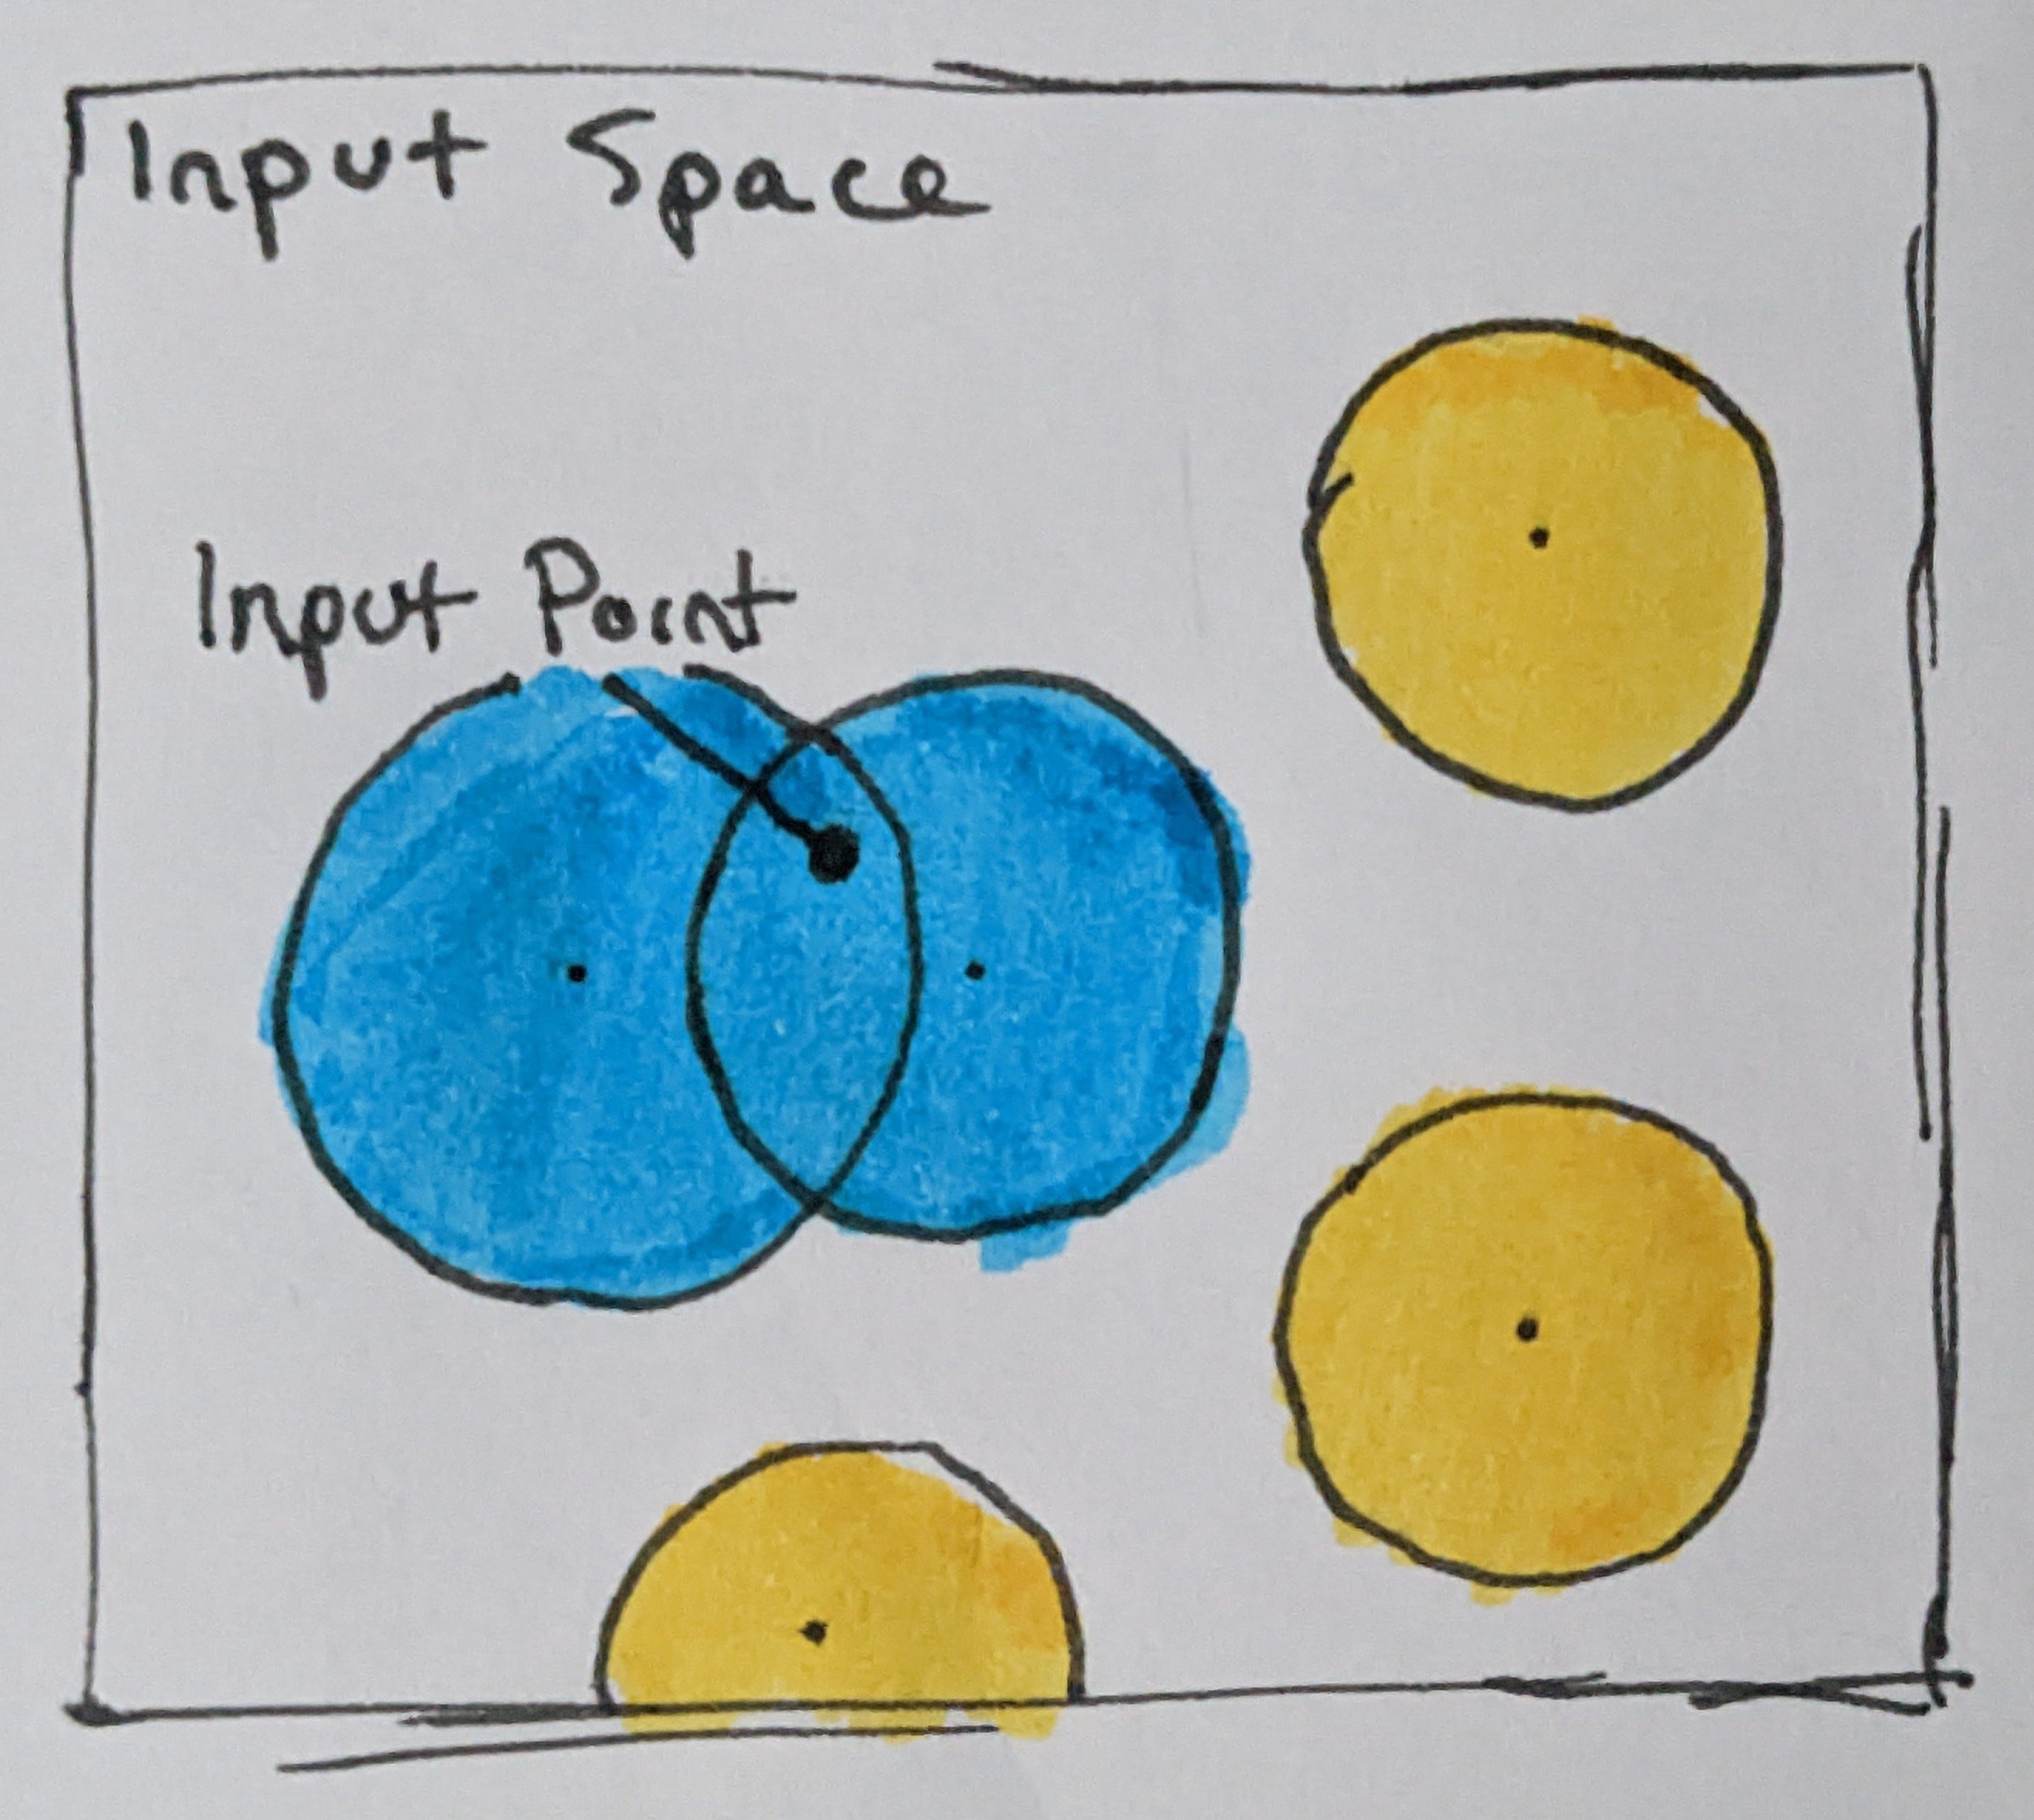 Input Space
Input Point